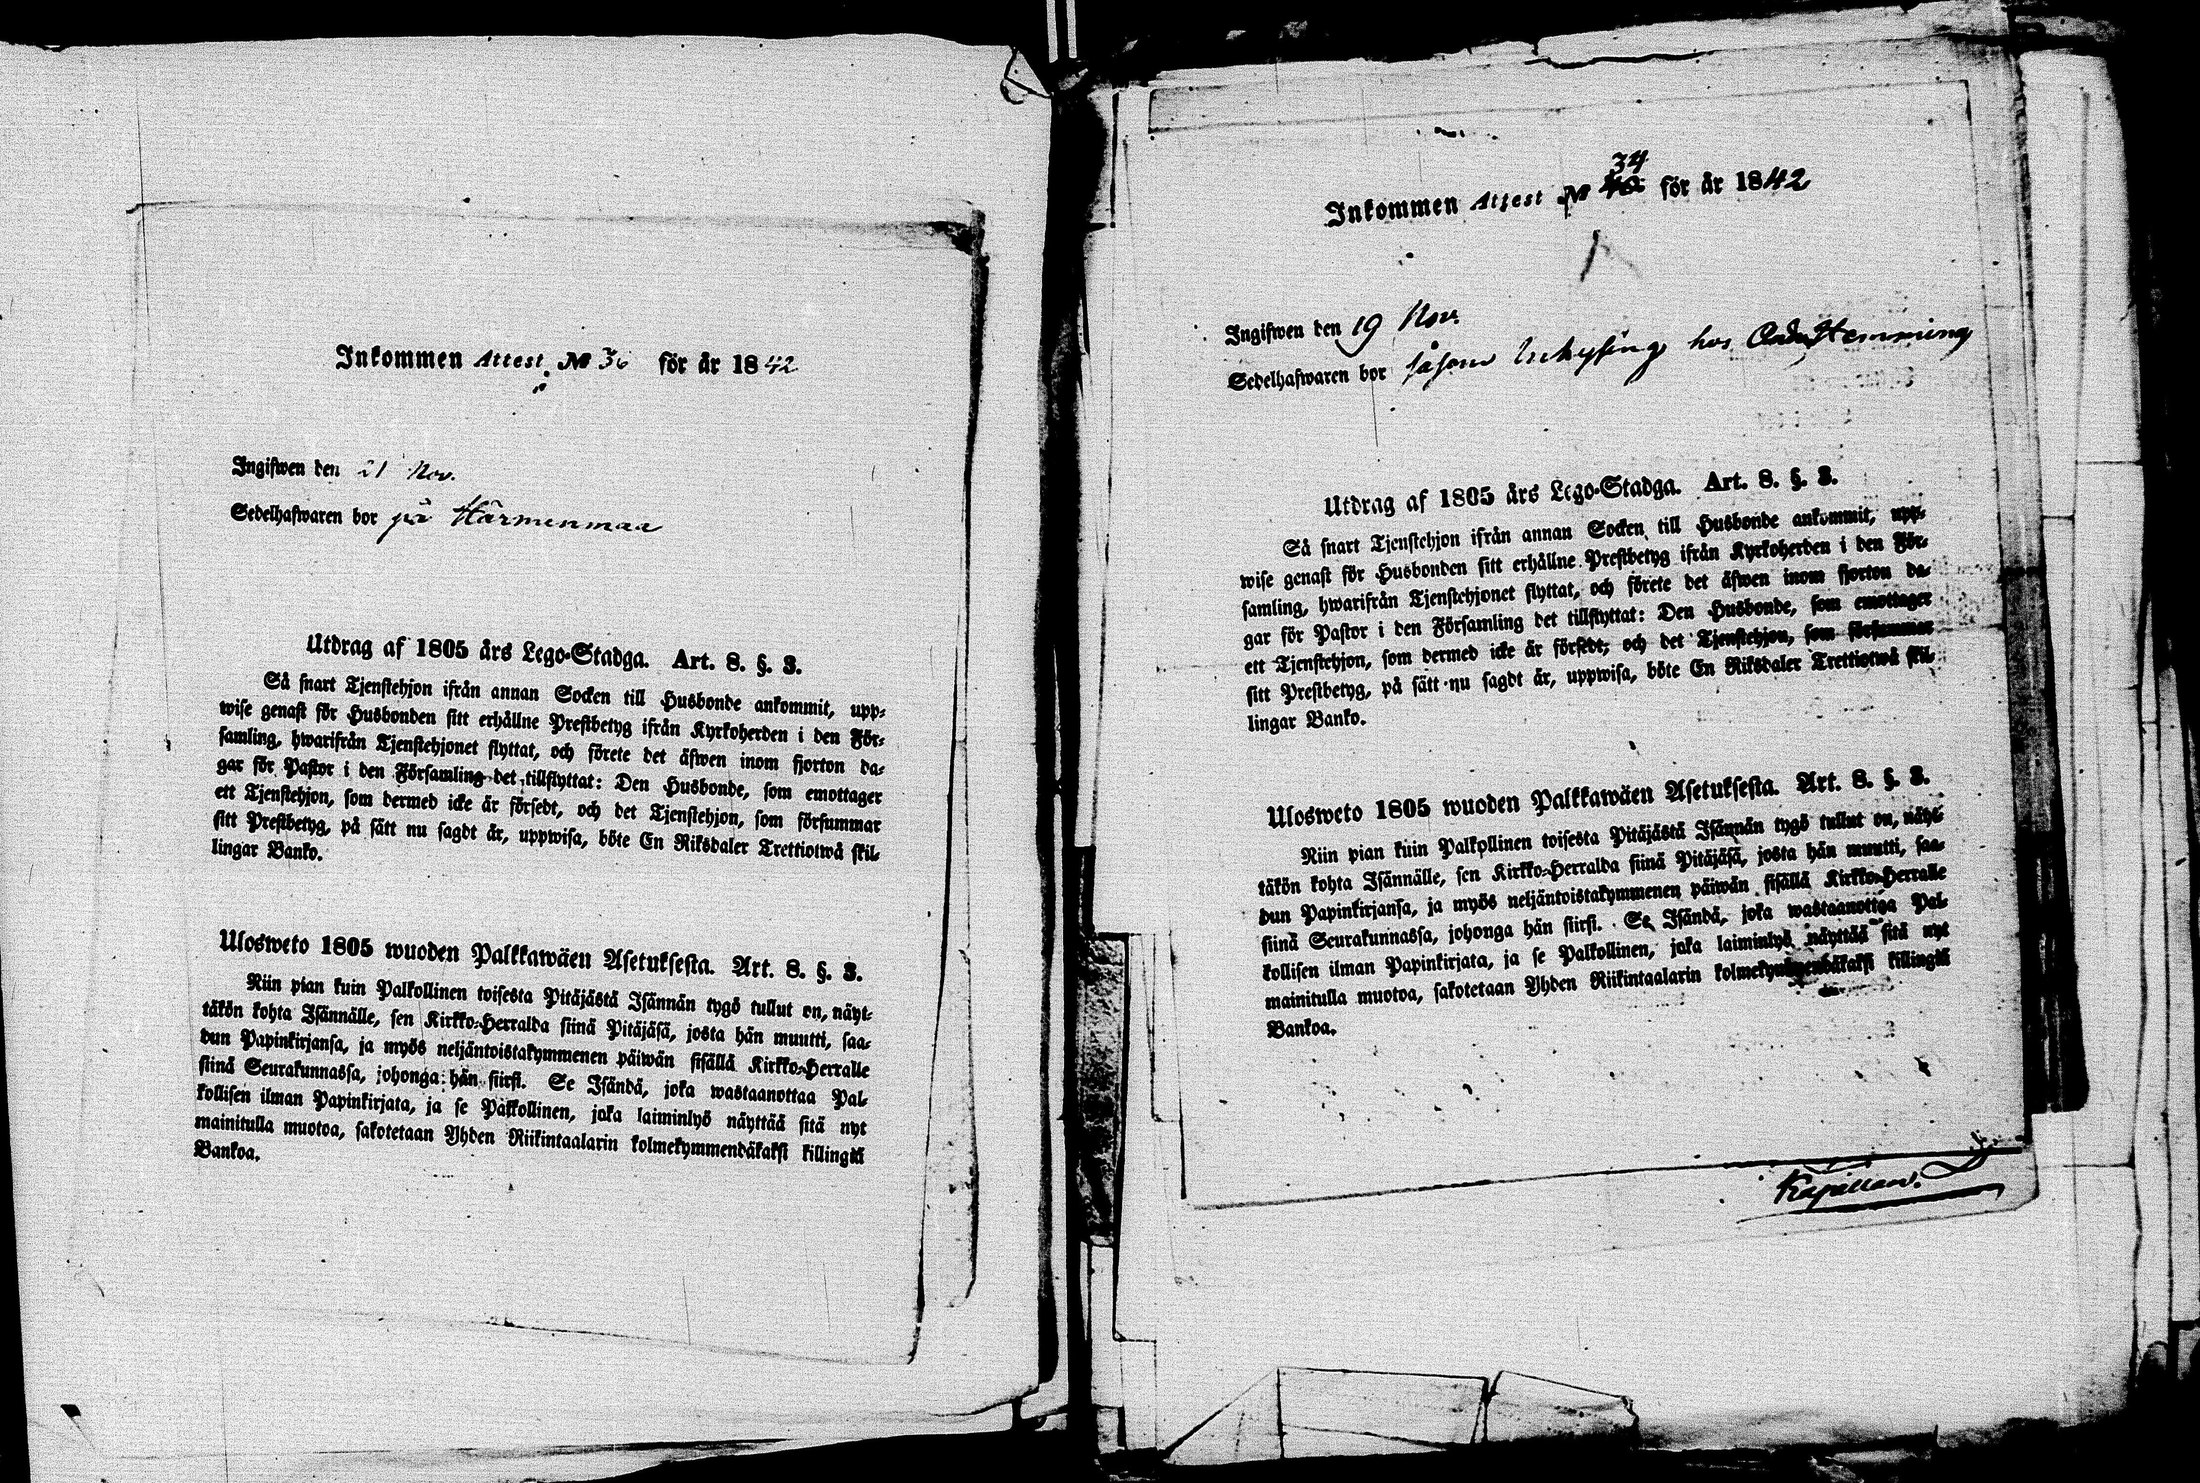 Inkommen Attest № 36 för år 1842
Ingifwen den 21 Nov.
Sedelhafwaren bor på Härmenmaa
Utdrag af 1805 års Lego-Stadga. Art. 8. §. 3.
Så snart Tjenstehjon ifrån annan Socken till Husbonde ankommit, upp-
wise genast för Husbonden sitt erhållne Prestbetyg ifrån Kyrkoherden i den För-
samling, hwarifrån Tjenstehjonet flyttat, och förete det äfwen inom fjorton da-
gar för Pastor i den Församling det tillflyttat: Den Husbonde, som emottager
ett Tjenstehjon, som dermed icke är försedt, och det Tjenstehjon, som försummar
sitt Prestbetyg, på sätt nu sagdt är, uppwisa, böte En Riksdaler Trettiotwå skil-
lingar Banko.
Ulosweto 1805 wuoden Palkkawäen Asetuksesta. Art. 8. §. 3.
Niin pian kuin Palkollinen toisesta Pitäjästä Isännän tygö tullut on, näyt-
täkön kohta Isännälle, sen Kirkko-Herralda siinä Pitäjäsä, josta hän muutti, saa-
dun Papinkirjansa, ja myös neljäntoistakymmenen päiwän sisällä Kirkko-Herralle
siinä Seurakunnassa, johonga hän siirsi. Se Isändä, joka wastaanottaa Pal-
kollisen ilman Papinkirjata, ja se Palkollinen, joka laiminlyö näyttää sitä nyt
mainitulla muotoa, sakotetaan Yhden Riikintaalarin kolmekymmendäkaksi killingiä
Bankoa.
Inkommen Attest № 34 för år 1842
Ingifwen den 19 Nov.
Sedelhafwaren bor såsom Inhysing hos Hemming
Utdrag af 1805 års Lego-Stadga. Art. 8. §. 3.
Så snart Tjenstehjon ifrån annan Socken till Husbonde ankommit, upp-
wise genast för Husbonden sitt erhållne Prestbetyg ifrån Kyrkoherden i den För-
samling, hwarifrån Tjenstehjonet flyttat, och förete det äfwen inom fjorton da-
gar för Pastor i den Församling det tillflyttat: Den Husbonde, som emottager
ett Tjenstehjon, som dermed icke är försedt, och det Tjenstehjon, som försummar
sitt Prestbetyg, på sätt nu sagdt är, uppwisa, böte En Riksdaler Trettiotwå skil-
lingar Banko.
Ulosweto 1805 wuoden Palkkawäen Asetuksesta. Art. 8. §. 3.
Niin pian kuin Palkollinen toisesta Pitäjästä Isännän tygö tullut on, näyt-
täkön kohta Isännälle, sen Kirkko-Herralda siinä Pitäjäsä, josta hän muutti, saa-
dun Papinkirjansa, ja myös neljäntoistakymmenen päiwän sisällä Kirkko-Herralle
siinä Seurakunnassa, johonga hän siirsi. Se Isändä, joka wastaanottaa Pal-
kollisen ilman Papinkirjata, ja se Palkollinen, joka laiminlyö näyttää sitä nyt
mainitulla muotoa, sakotetaan Yhden Riikintaalarin kolmekymmendäkaksi killingiä
Bankoa.
Kapellan.